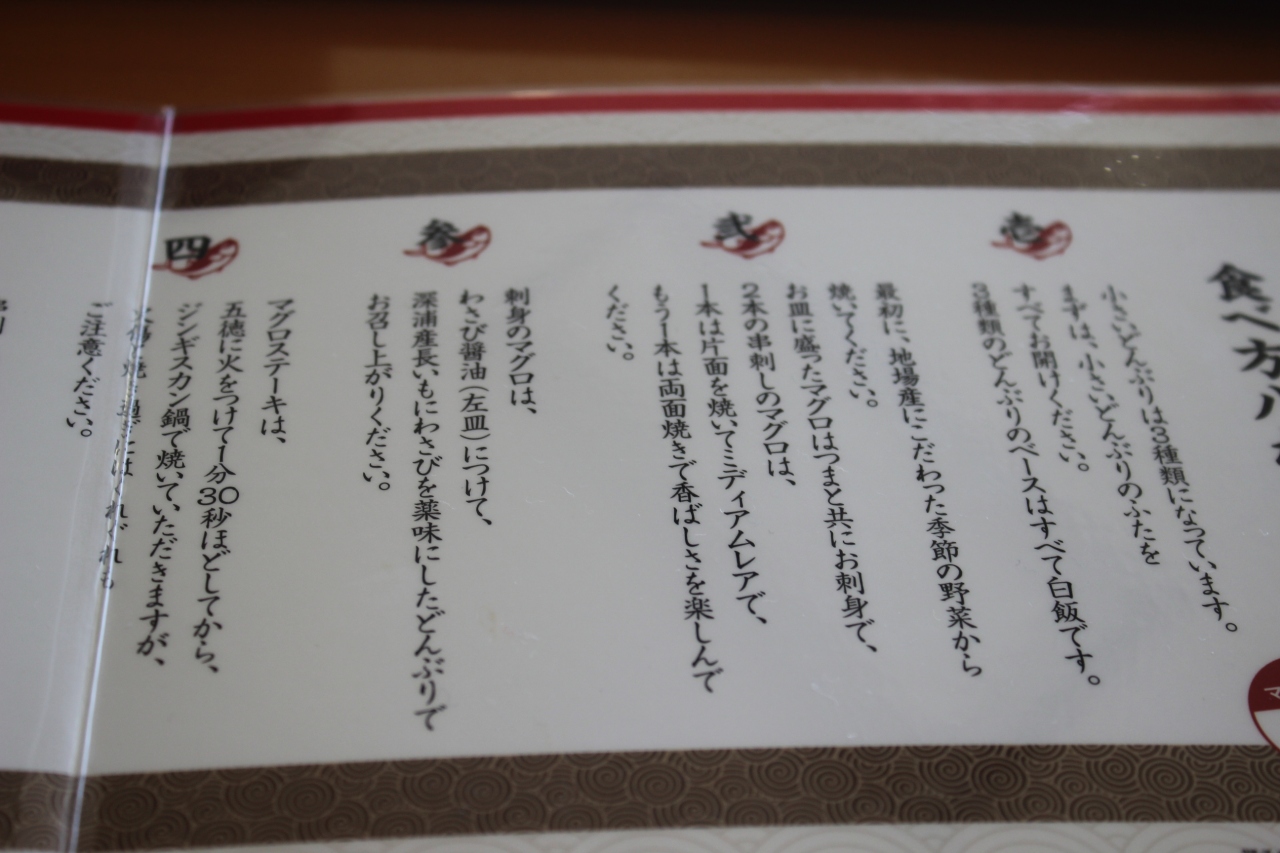 食べ方八
壱
小さいどんぶりは3種類になっています。
まずは、小さいどんぶりのふたを
すべてお開けください。
3種類のどんぶりのベースはすべて白飯です。
弐
最初に、地場産にこだわった季節の野菜から
焼いてください。
お皿に盛ったマグロはつまと共にお刺身で、
2本の串刺しのマグロは、
1本は片面を焼いてミディアムレアで、
もう1本は両面焼きで香ばしさを楽しんで
ください。
参
刺身のマグロは、
わさび醤油(左皿)につけて、
深浦産長いもにわさびを薬味にしたどんぶりで
お召し上がりください。
四
マグロステーキは、
五徳に火をつけて1分30秒ほどしてから、
ジンギスカン鍋で焼いていただきますが、
焼き過ぎにはくれぐれも
ご注意ください。